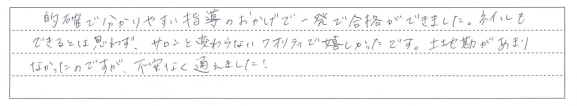 的確で分かりやすい指導のおかげで一発で合格ができました。ネイルも
できるとは思わず、サロンと変わらないクオリティで嬉しかったです。土地勘があまり
なかったのですが、不安なく通えました!